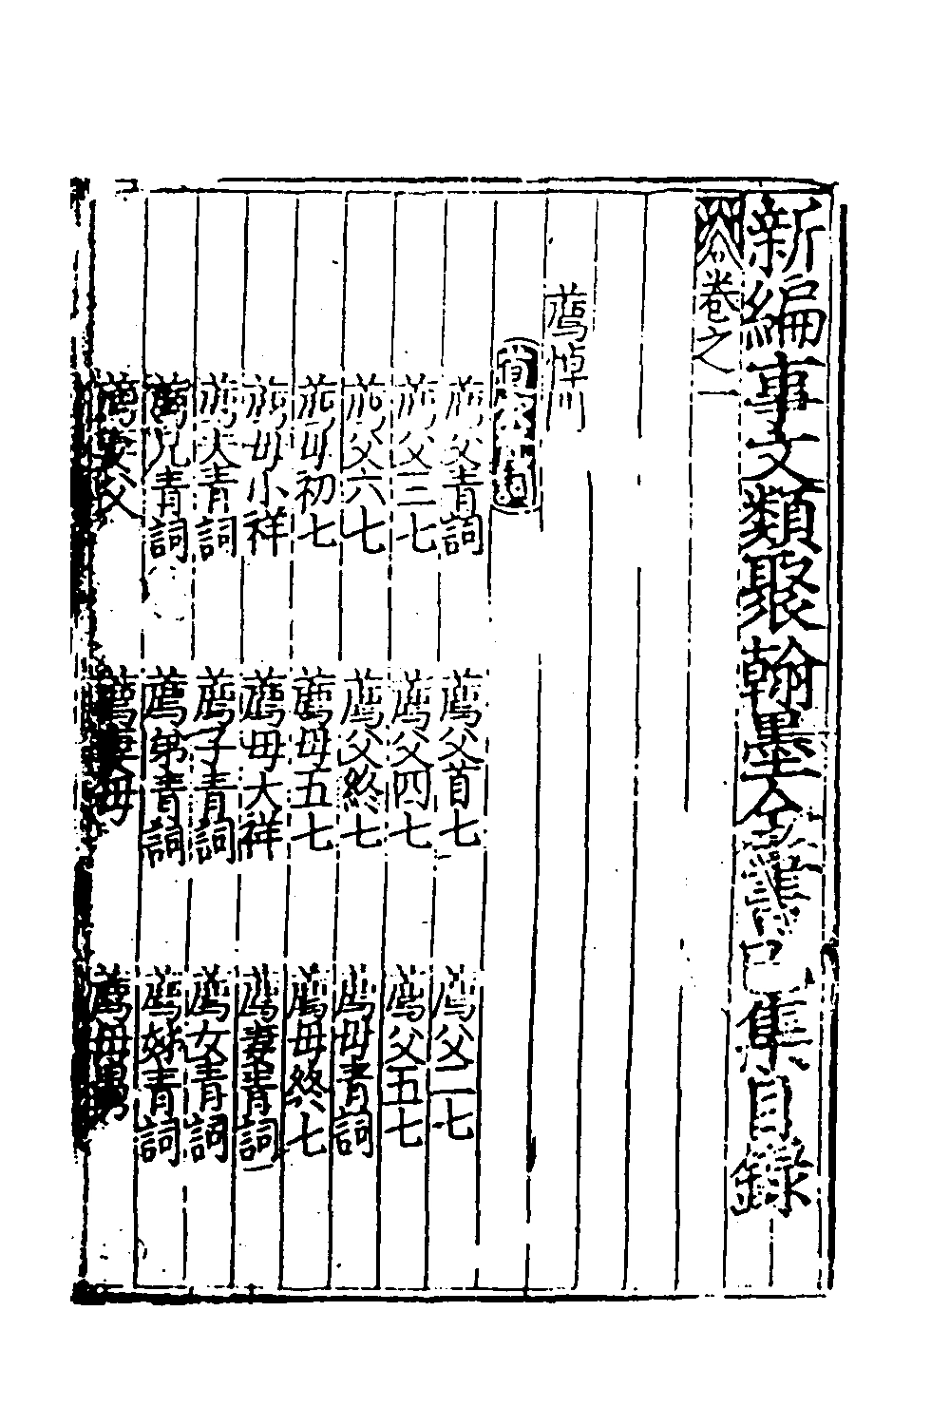 新編事文類聚翰墨全書己集目錄
卷之一
薦悼門
薦父青詞 薦父首七 薦父二七
薦父三七 薦父四七 薦父五七
薦父六七 薦父終七 薦母青詞
薦母初七 薦母五七 薦母終七
薦母小祥 薦母大祥 薦妻青詞
薦夫青詞 薦子青詞 薦女青詞
薦兄青詞 薦弟青詞 薦青詞
薦妻父 薦妻母 薦母舅